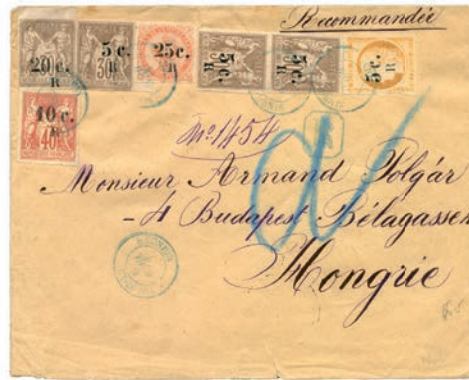 Recommandée
20 c.
R
5 c.
30
R
25 c.
R
5 c.
R
5 c.
R
5 c.
R
10 c.
R
40
No 1454
Monsieur Armand Polgár
- 4 Budapest Bélagasse
Hongrie